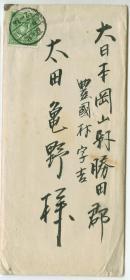 大日本岡山縣勝田郡
豐國村字吉
太田亀野様